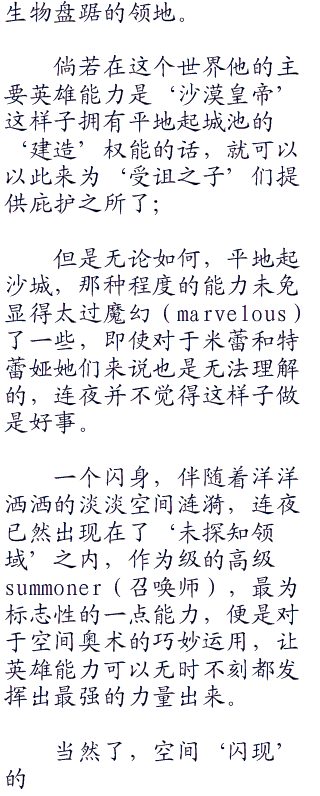 生物盘踞的领地。
倘若在这个世界他的主
要英雄能力是‘沙漠皇帝’
这样子拥有平地起城池的
‘建造’权能的话，就可以
以此来为‘受诅之子’们提
供庇护之所了；
但是无论如何，平地起
沙城，那种程度的能力未免
显得太过魔幻（marvelous）
了一些，即使对于米蕾和特
蕾娅她们来说也是无法理解
的，连夜并不觉得这样子做
是好事。
一个闪身，伴随着洋洋
洒洒的淡淡空间涟漪，连夜
已然出现在了‘未探知领
域’之内，作为级的高级
summoner（召唤师），最为
标志性的一点能力，便是对
于空间奥术的巧妙运用，让
英雄能力可以无时不刻都发
挥出最强的力量出来。
当然了，空间‘闪现’
的